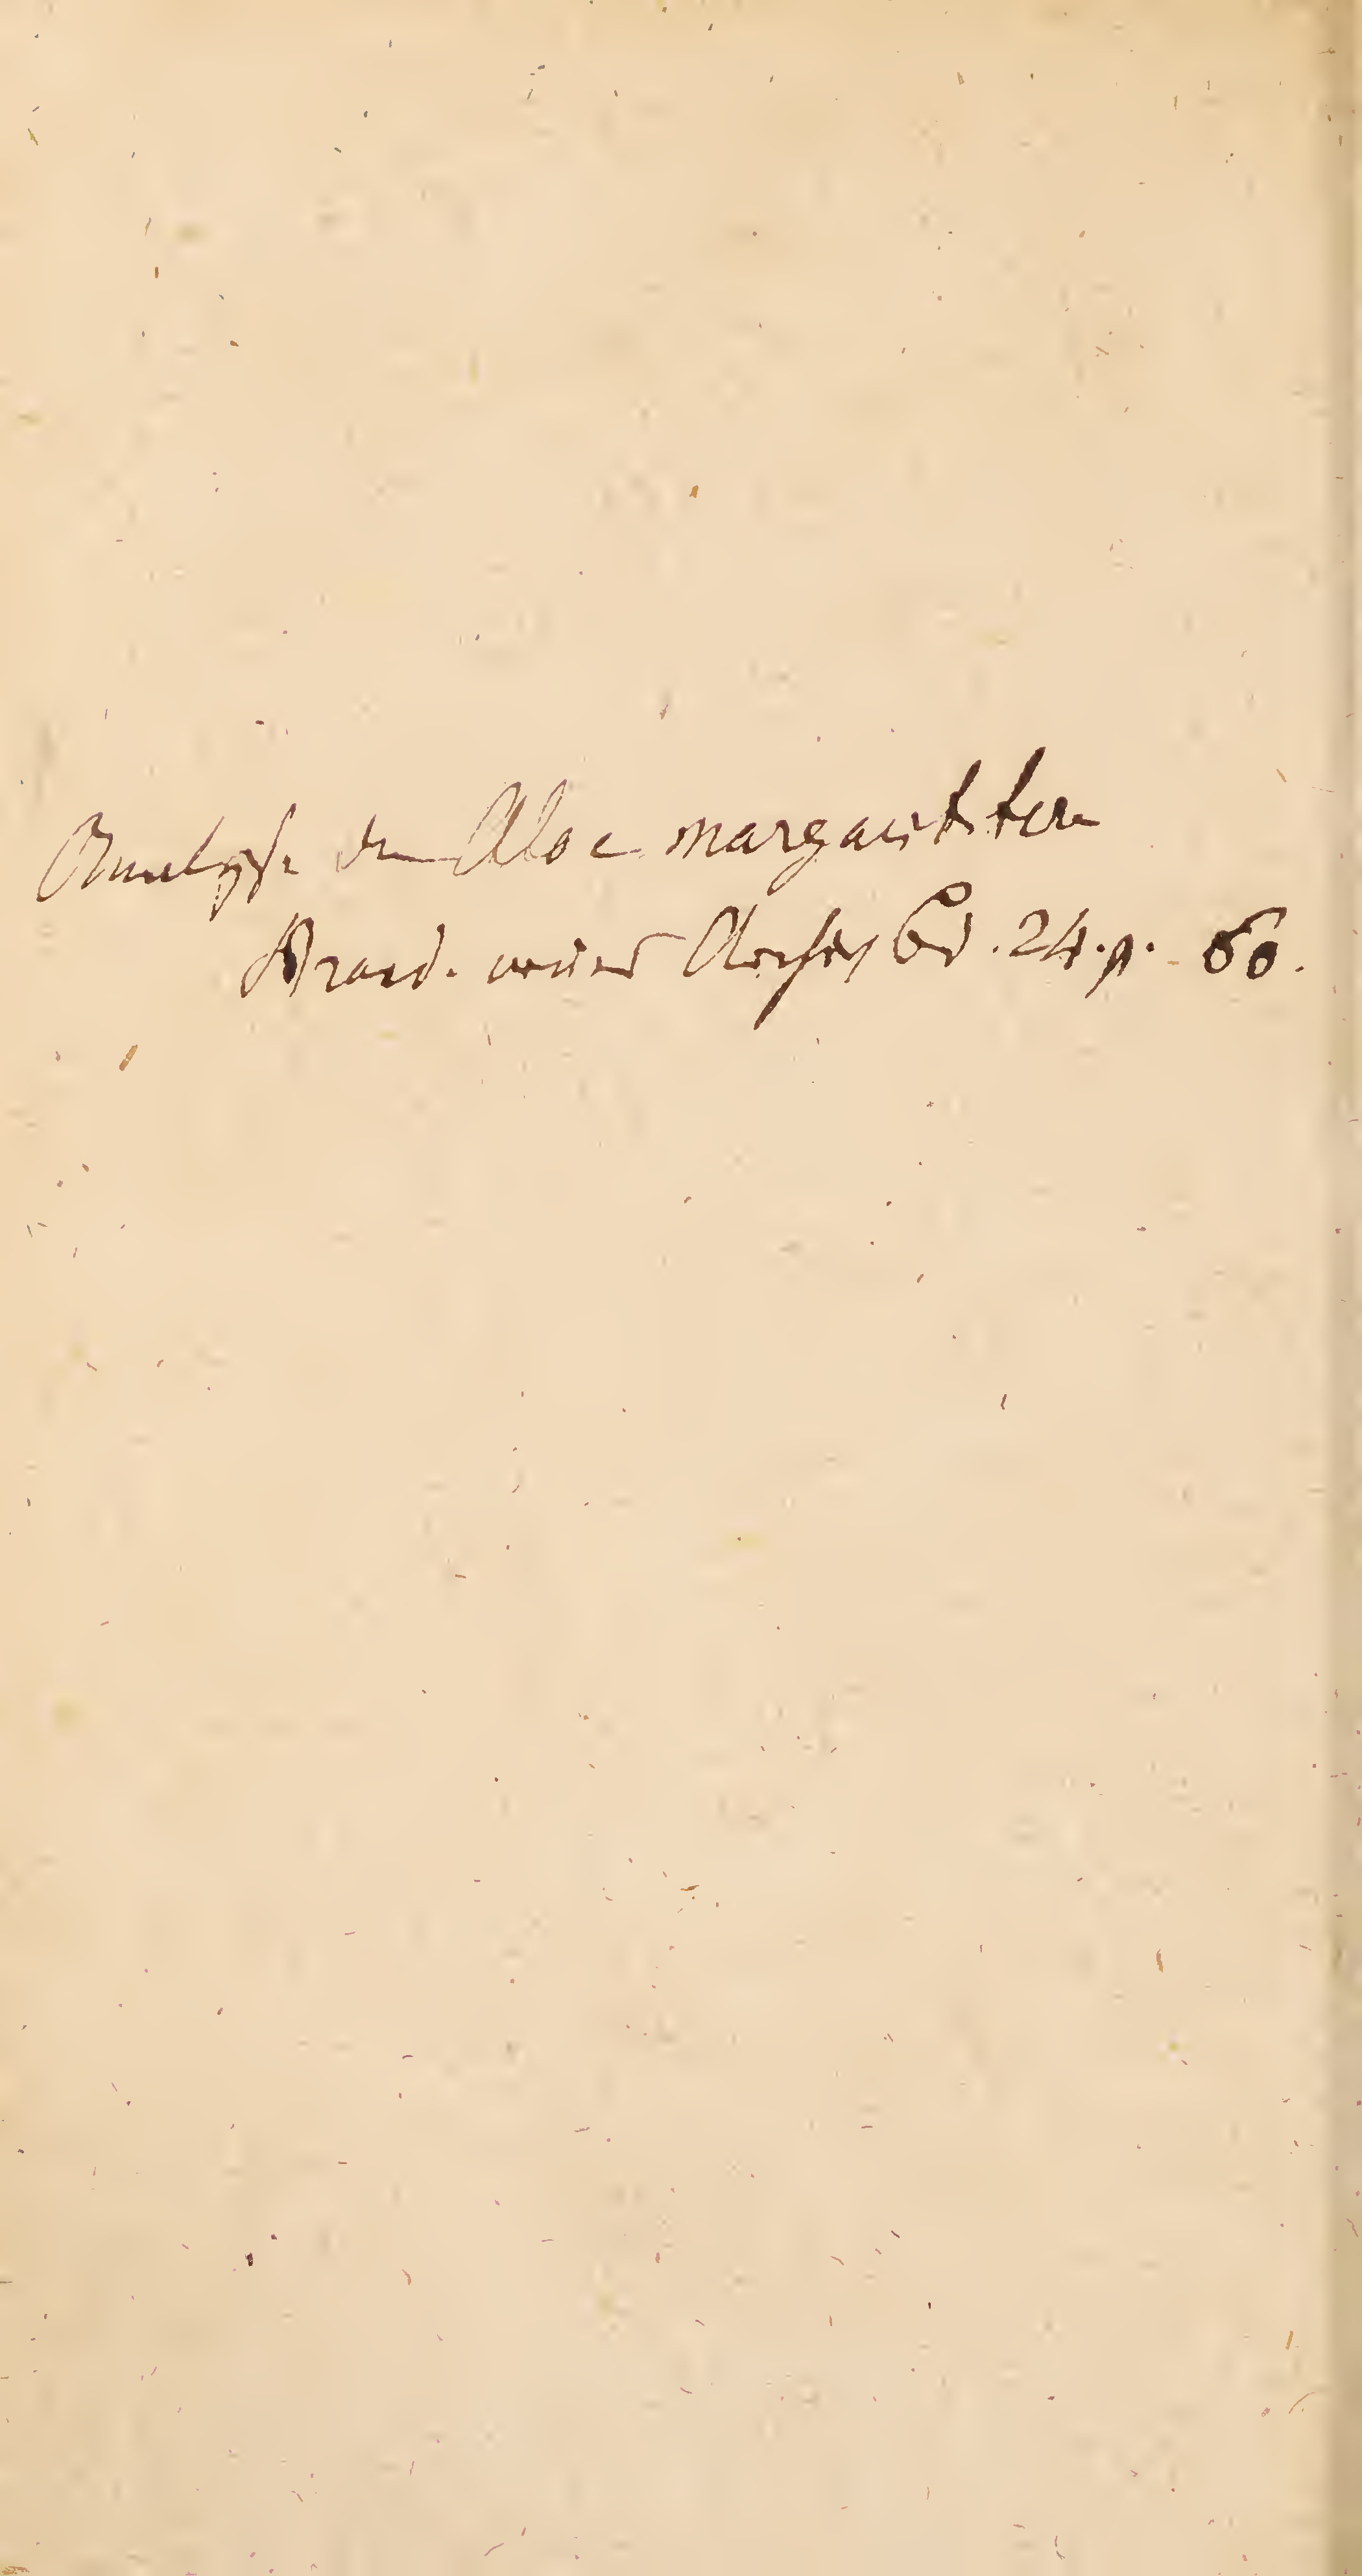 Analyse der Aloe margaritifera
Brand. neues Archiv Bd. 24. p. 60.